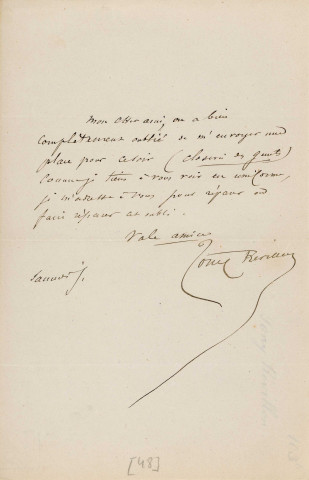 Mon cher ami, on a bien
complètement oublié de m'envoyer une
place pour ce soir (closerie des genêts)
comme je tiens à vous voir en uniforme,
je m'adresse à vous pour réparer ou
faire réparer cet oubli.
Vale amice
Tony Révillon
samedi
[48]